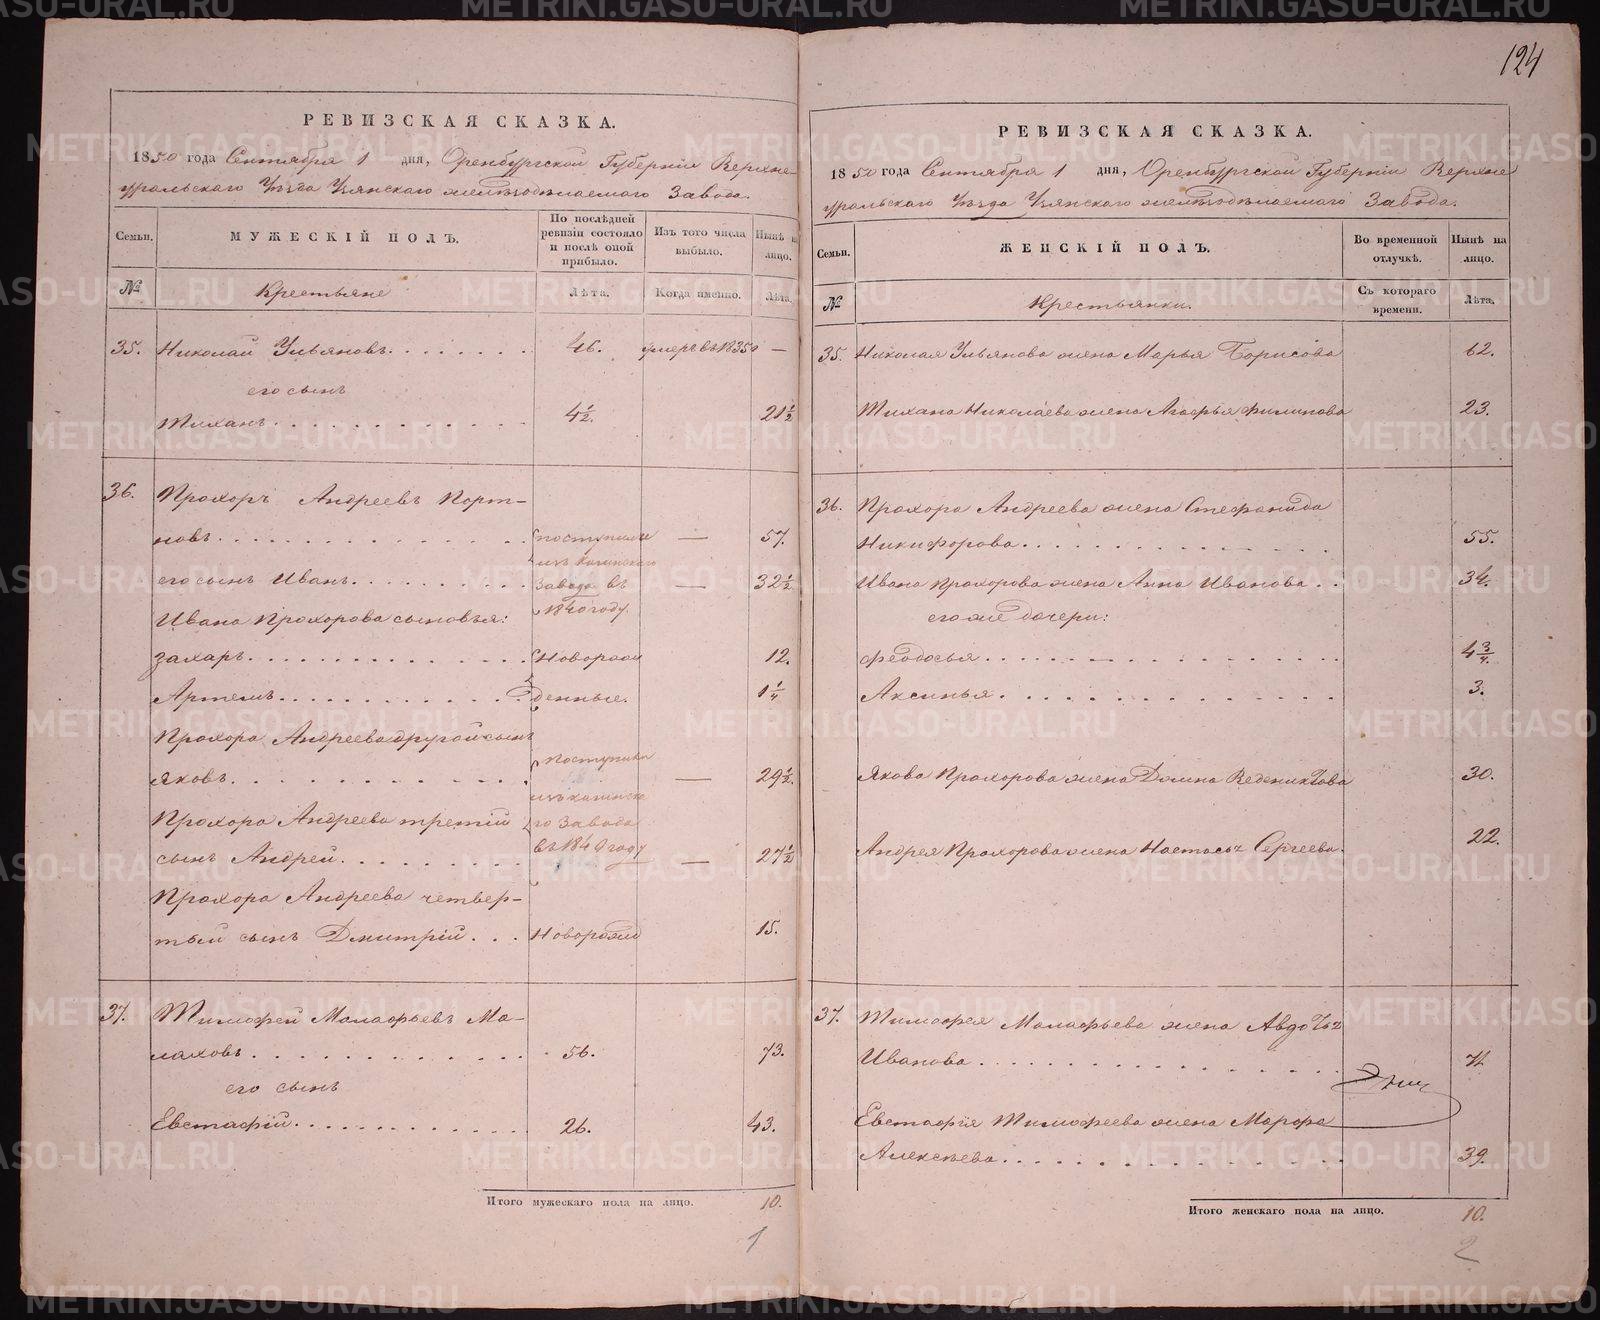 124
РЕВИЗСКАЯ СКАЗКА.
1850 года Сентября 1 дня, Оренбургской Губерніи Верхне-
уральскаго Уѣзда Узянскаго желѣзодѣлаемаго Завода.
Семьи.
МУЖЕСКІЙ ПОЛЪ.
По послѣдней ревизіи состояло и послѣ оной прибыло.
Изъ того числа выбыло.
Нынѣ на лицо.
№
Крестьяне
Лѣта.
Когда именно.
Лѣта.
35. Николай Ульяновъ. 46. умеръ въ 1835 0 —
его сынъ
Тиханъ. 4 1/2. 21 1/2
36. Прохоръ Андреевъ Порт-
новъ. поступили — 57.
изъ Кагинскаго
его сынъ Иванъ. Завода въ — 32 1/2
1840 году.
Ивана Прохорова сыновья:
Захаръ. Новорож 12.
Артемъ. денные. 1 1/4
Прохора Андреева другой сынъ
поступили
Яковъ. — 29 1/2.
изъ Кагинска
Прохора Андреева третій го Завода
сынъ Андрей. въ 1840 году — 27 1/2
Прохора Андреева четвер-
тый сынъ Дмитрій. Новорожд 15.
37. Тимофей Малафьевъ Ма-
лаховъ. 56. 73.
его сынъ
Евстафій. 26. 43.
Итого мужескаго пола на лицо. 10.
1
РЕВИЗСКАЯ СКАЗКА.
1850 года Сентября 1 дня, Оренбургской Губерніи Верхне
уральскаго Уѣзда Узянскаго желѣзодѣлаемаго Завода.
Семьи.
ЖЕНСКІЙ ПОЛЪ.
Во временной отлучкѣ.
Нынѣ на лицо.
№
Крестьянки.
Съ котораго времени.
Лѣта.
35. Николая Ульянова жена Марья Борисова 62.
Тихана Николаева жена Агафья Филипова 23.
36. Прохора Андреева жена Стефанида
Никифорова. 55.
Ивана Прохорова жена Анна Иванова. 34.
его же дочери:
Феодосья. 4 3/4.
Аксинья. 3.
Якова Прохорова жена Домна Веденихтова 30.
Андрея Прохорова жена Настасья Сергеева. 22.
37. Тимофея Малафьева жена Авдотья
Иванова. 71.
Евстафія Тимофеева жена Марфа
Алексѣева. 39.
Итого женскаго пола на лицо. 10.
2
METRIKI.GASO-URAL.RU